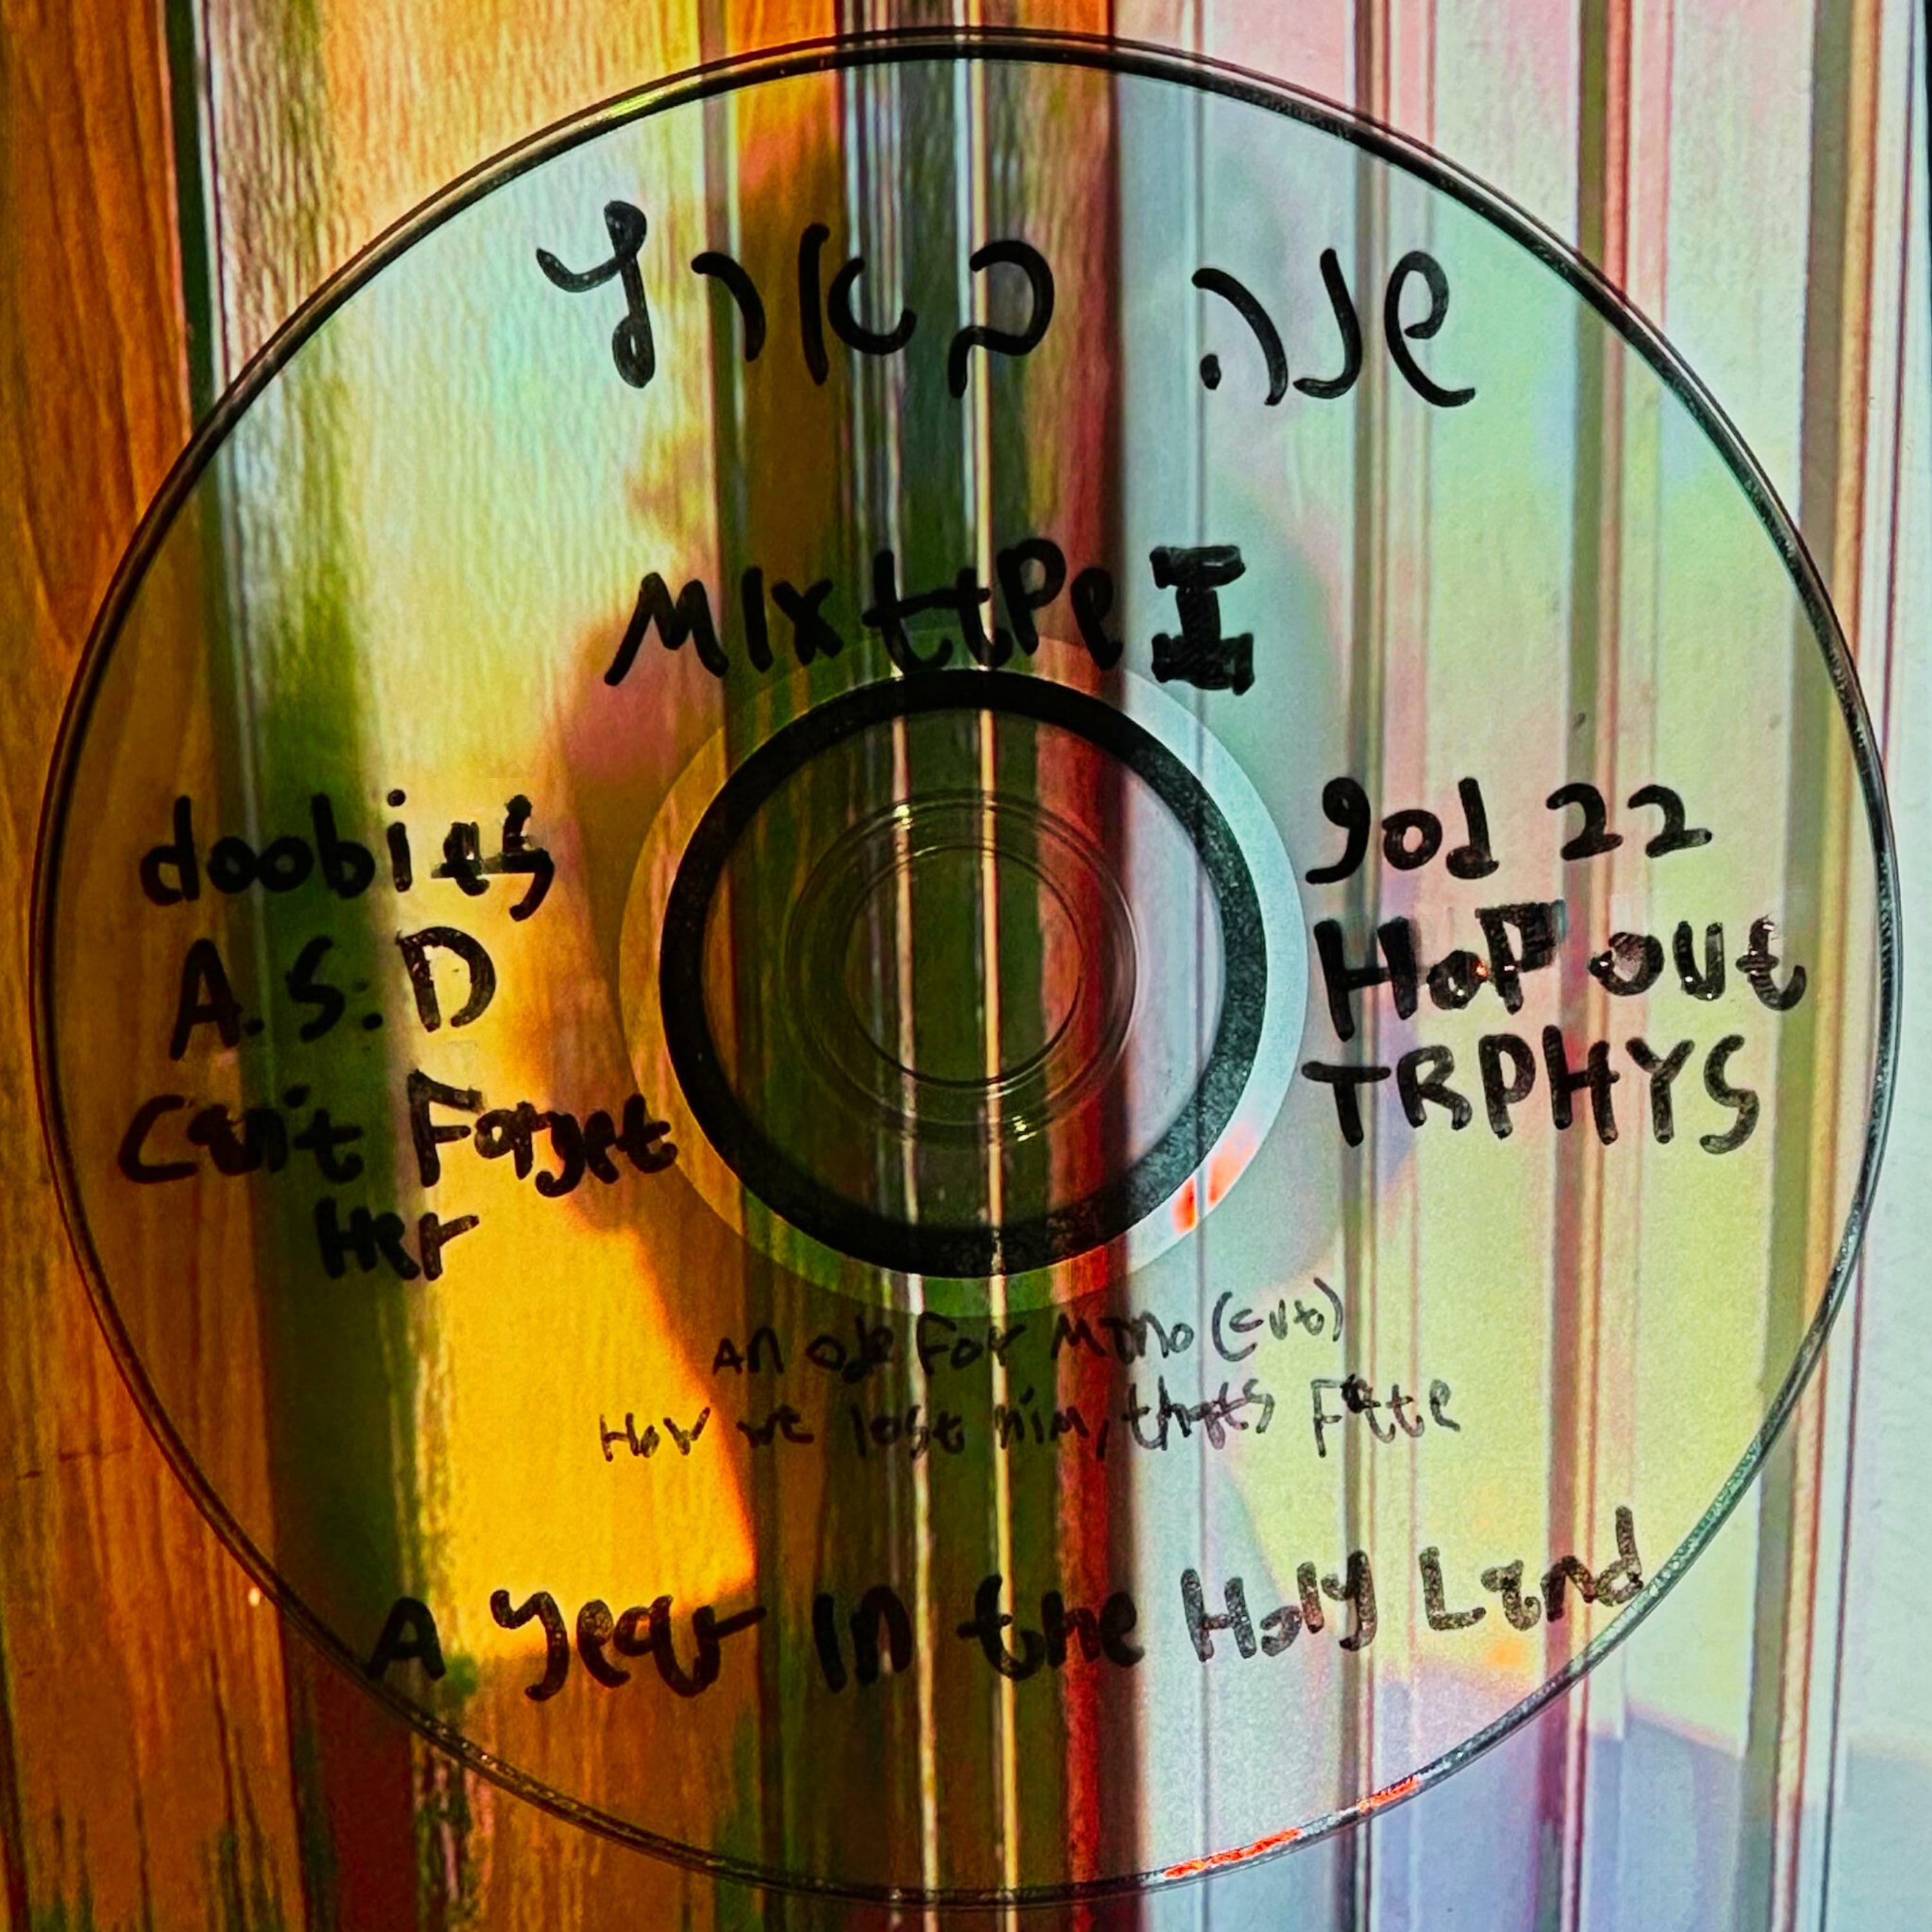 שנה בארץ
MIxttPe I
doobies
A.S.D
Can't Forget
Her
god 22
HoP out
TRPHYS
An ode For Mono (cut)
How we lost him, thats Fate
A Year In the Holy Land